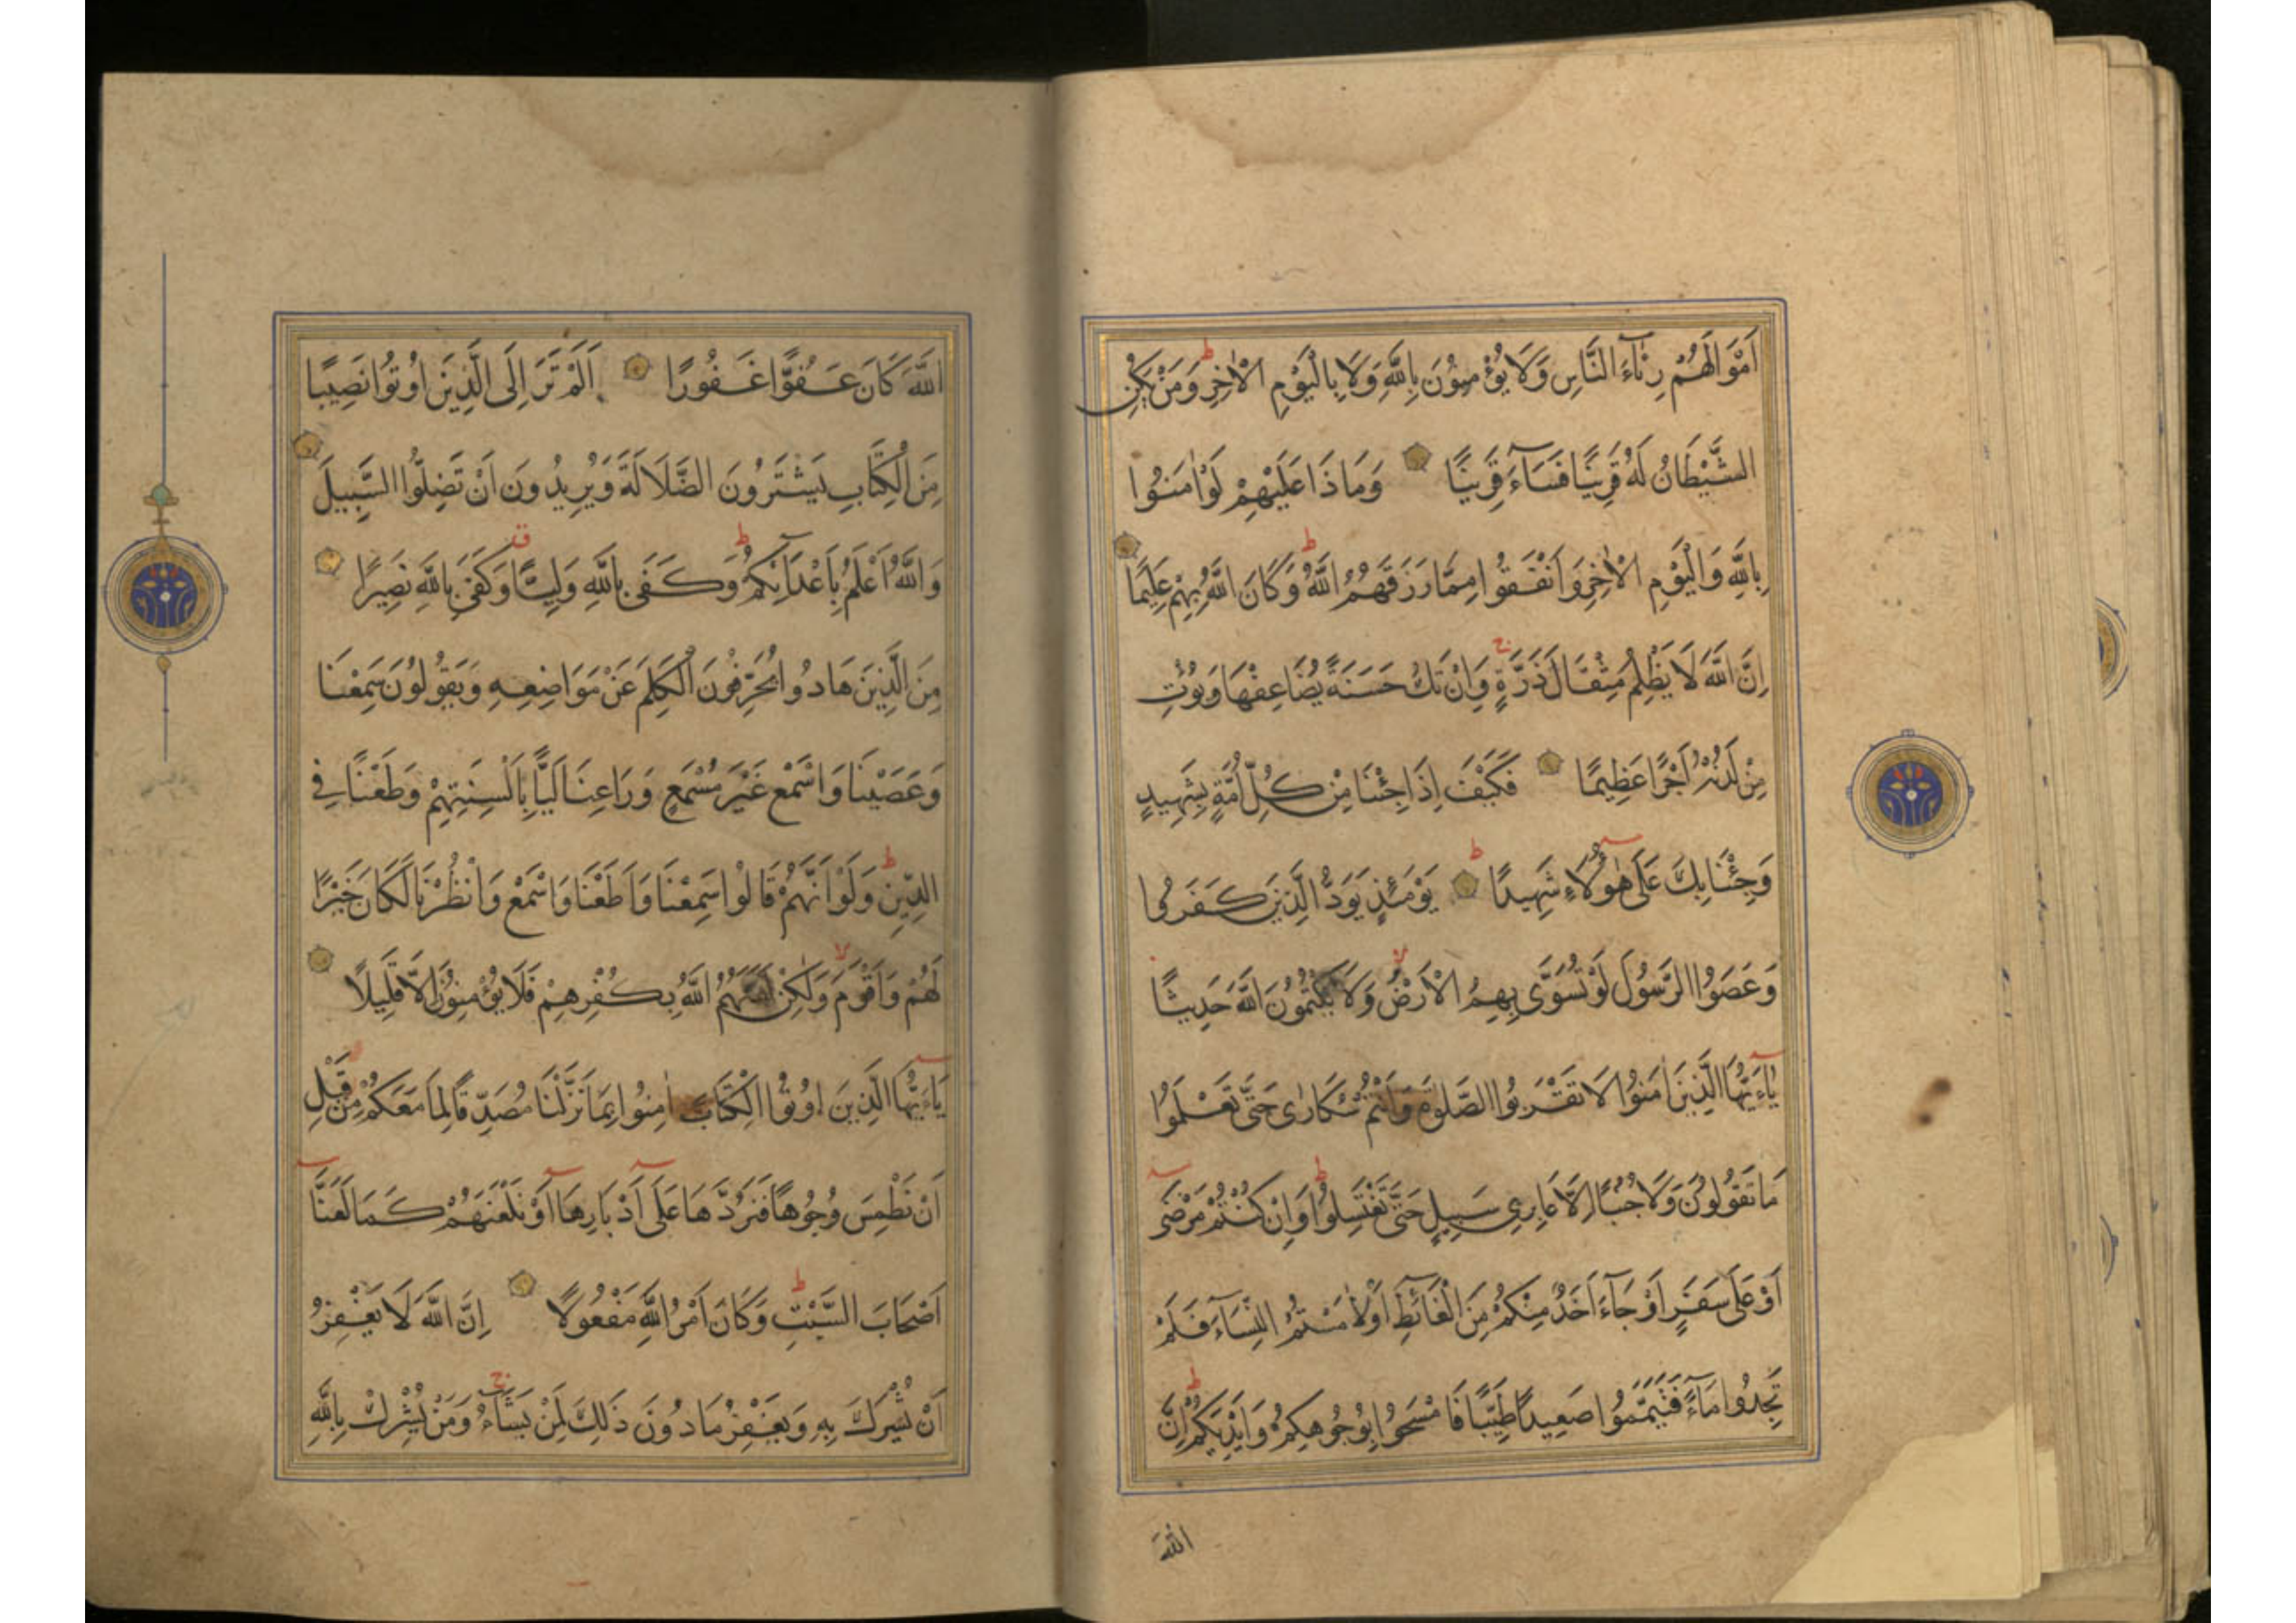 اَمْوَالَهُمْ رِئَآءَ النَّاسِ وَلَا يُؤْمِنُونَ بِاللّٰهِ وَلَا بِالْيَوْمِ الْاٰخِرِ ط وَمَنْ يَكُنِ
الشَّيْطَانُ لَهُ قَرِينًا فَسَآءَ قَرِينًا وَمَا ذَا عَلَيْهِمْ لَوْ اٰمَنُوا
بِاللّٰهِ وَالْيَوْمِ الْاٰخِرِ وَاَنْفَقُوا مِمَّا رَزَقَهُمُ اللّٰهُ ط وَكَانَ اللّٰهُ بِهِمْ عَلِيمًا
اِنَّ اللّٰهَ لَا يَظْلِمُ مِثْقَالَ ذَرَّةٍ ج وَاِنْ تَكُ حَسَنَةً يُضَاعِفْهَا وَيُؤْتِ
مِنْ لَدُنْهُ اَجْرًا عَظِيمًا فَكَيْفَ اِذَا جِئْنَا مِنْ كُلِّ اُمَّةٍ بِشَهِيدٍ
وَجِئْنَا بِكَ عَلَى هٰؤُلَاءِ شَهِيدًا ط يَوْمَئِذٍ يَوَدُّ الَّذِينَ كَفَرُوا
وَعَصَوُا الرَّسُولَ لَوْ تُسَوَّى بِهِمُ الْاَرْضُ لا وَلَا يَكْتُمُونَ اللّٰهَ حَدِيثًا
يَآءَيُّهَا الَّذِينَ اٰمَنُوا لَا تَقْرَبُوا الصَّلٰوةَ وَاَنْتُمْ سُكَارٰى حَتَّى تَعْلَمُوا
مَا تَقُولُونَ وَلَا جُنُبًا اِلَّا عَابِرِى سَبِيلٍ حَتَّى تَغْتَسِلُوا ط وَاِنْ كُنْتُمْ مَرْضَى
اَوْ عَلَى سَفَرٍ اَوْ جَآءَ اَحَدٌ مِنْكُمْ مِنَ الْغَآئِطِ اَوْ لَامَسْتُمُ النِّسَآءَ فَلَمْ
تَجِدُوا مَآءً فَتَيَمَّمُوا صَعِيدًا طَيِّبًا فَامْسَحُوا بِوُجُوهِكُمْ وَاَيْدِيكُمْ ط اِنَّ
اللّٰهَ
اللّٰهَ كَانَ عَفُوًّا غَفُورًا اَلَمْ تَرَ اِلَى الَّذِينَ اُوتُوا نَصِيبًا
مِنَ الْكِتَابِ يَشْتَرُونَ الضَّلَالَةَ وَيُرِيدُونَ اَنْ تَضِلُّوا السَّبِيلَ
وَاللّٰهُ اَعْلَمُ بِاَعْدَآئِكُمْ ط وَكَفَى بِاللّٰهِ وَلِيًّا ق وَكَفَى بِاللّٰهِ نَصِيرًا
مِنَ الَّذِينَ هَادُوا يُحَرِّفُونَ الْكَلِمَ عَنْ مَوَاضِعِهِ وَيَقُولُونَ سَمِعْنَا
وَعَصَيْنَا وَاسْمَعْ غَيْرَ مُسْمَعٍ وَرَاعِنَا لَيًّا بِاَلْسِنَتِهِمْ وَطَعْنًا فِي
الدِّينِ ط وَلَوْ اَنَّهُمْ قَالُوا سَمِعْنَا وَاَطَعْنَا وَاسْمَعْ وَانْظُرْنَا لَكَانَ خَيْرًا
لَهُمْ وَاَقْوَمَ لا وَلٰكِنْ لَعَنَهُمُ اللّٰهُ بِكُفْرِهِمْ فَلَا يُؤْمِنُونَ اِلَّا قَلِيلًا
يَآءَيُّهَا الَّذِينَ اُوتُوا الْكِتَابَ اٰمِنُوا بِمَا نَزَّلْنَا مُصَدِّقًا لِمَا مَعَكُمْ مِنْ قَبْلِ
اَنْ نَطْمِسَ وُجُوهًا فَنَرُدَّهَا عَلَى اَدْبَارِهَا اَوْ نَلْعَنَهُمْ كَمَا لَعَنَّا
اَصْحَابَ السَّبْتِ ط وَكَانَ اَمْرُ اللّٰهِ مَفْعُولًا اِنَّ اللّٰهَ لَا يَغْفِرُ
اَنْ يُشْرَكَ بِهِ وَيَغْفِرُ مَا دُونَ ذٰلِكَ لِمَنْ يَشَآءُ ج وَمَنْ يُشْرِكْ بِاللّٰهِ